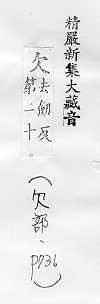 精嚴新集大藏音
欠去劒反
第二十
(欠部、p736)